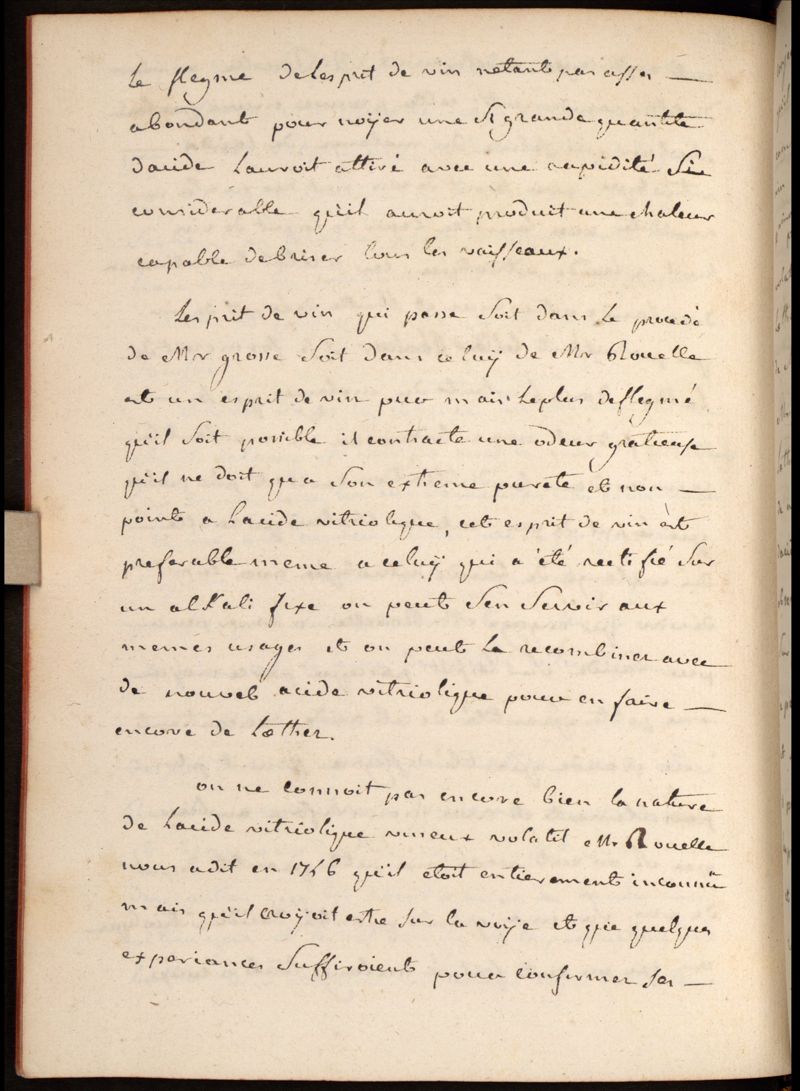 le flegme delesprit de vin netant pas assés —
abondant pour noÿer une Si grande quantité
dacide Lauroit attiré avec une cupidité Si
considerable qu'il auroit produit une chaleur
capable debriser tous les vaisseaux.
Lesprit de vin qui passe Soit dans le procedé
de Mr grosse Soit dans celuÿ de Mr Rouelle
est un esprit de vin pur mais leplus deflegmé
qu'il Soit possible il contracte une odeur gratieuse
qu'il ne doit qu a Son extreme pureté et non —
point a Lacide vitriolique, cet esprit de vin est
preferable meme a celuÿ qui a été rectifié Sur
un alkali fixe on peut Sen Servir aux
memes usages et on peut Le recombiner avec
de nouvel acide vitriolique pour en faire —
encore de Lœther.
on ne connoit pas encore bien la nature
de Lacide vitriolique vineux volatil Mr Rouelle
nous a dit en 1746 qu'il etoit entierement inconnü
mais qu'il croÿoit estre Sur la voÿe et que quelques
experiances Suffiroient pour confirmer Ses —